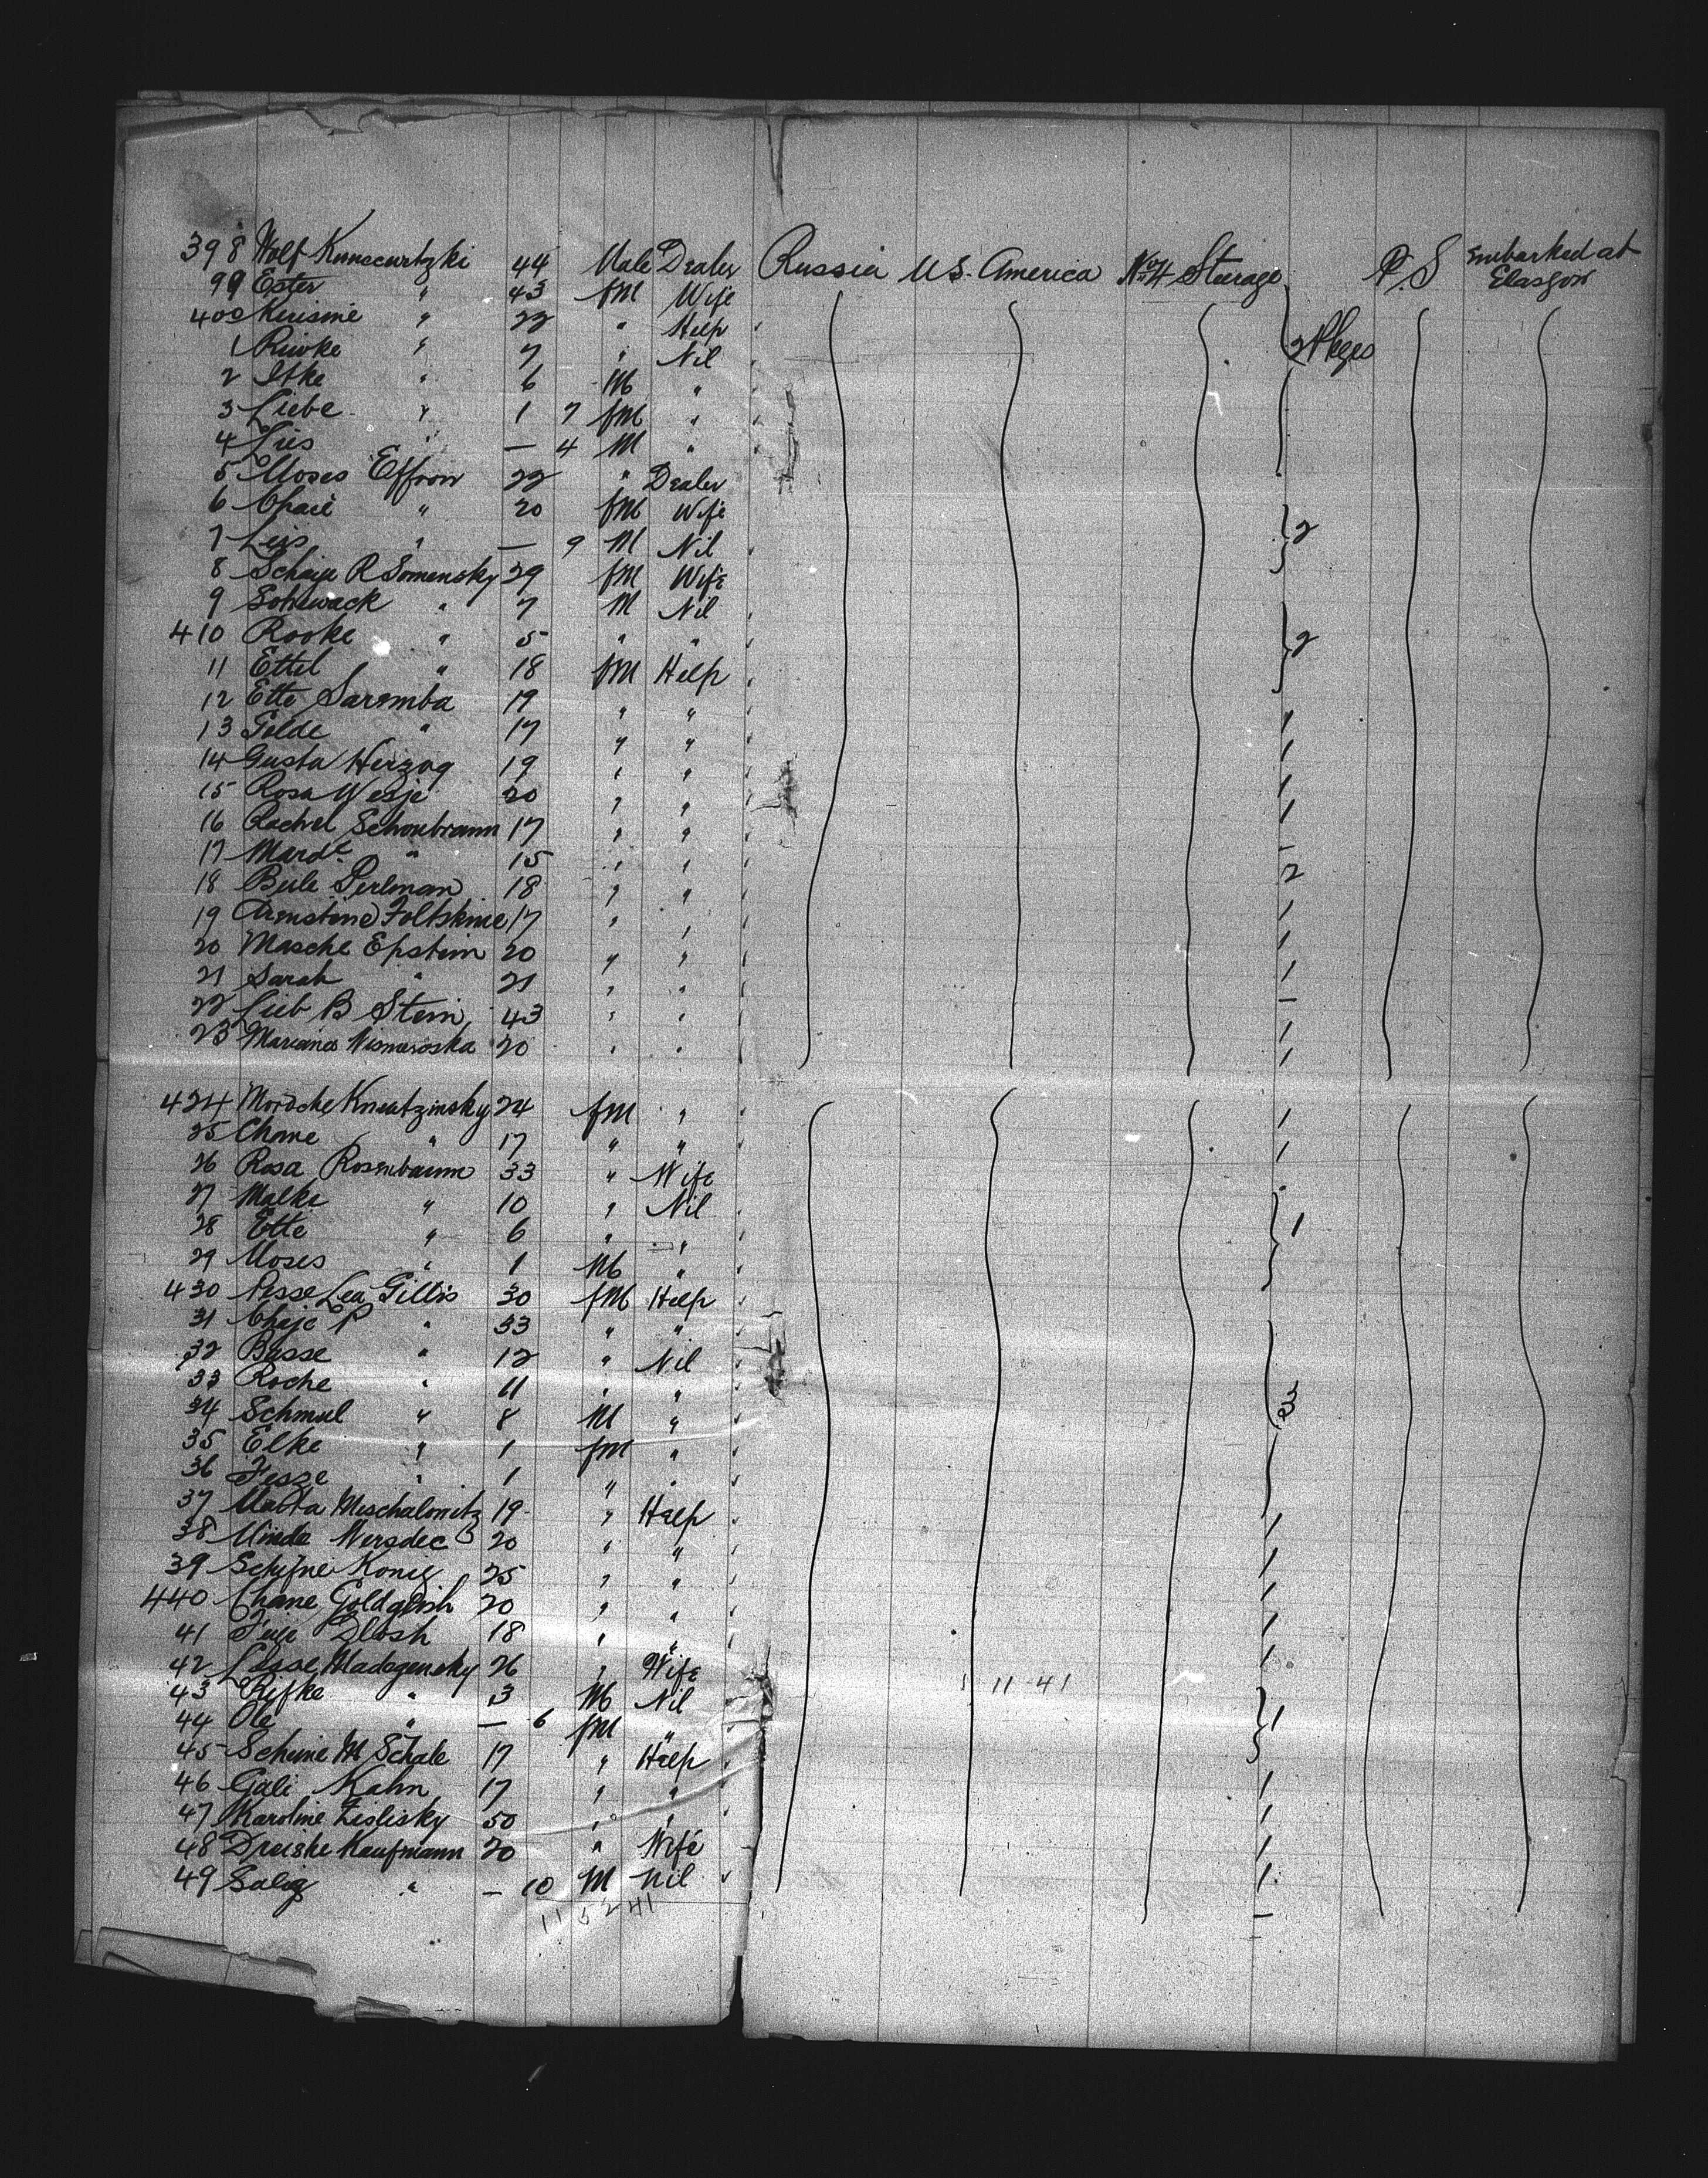 398 Wolf Kunscurtzki 44 Male Dealer Russia U.S. America No 4 Steerage P.S Embarked at Glasgow
99 Ester " 43 fM Wife
400 " 22 " Help 2 Pkges
1 Riwke " 7 " Nil
2 Itke " 6 M "
3 Liebe " 1 7 fM "
4 Lies " — 4 M "
5 Moses Effron 22 " Dealer
6 Chaie " 20 fM Wife 2
7 Leis " — 9 M Nil
8 Scheije R Somensky 29 fM Wife
9 " 7 M Nil
410 Rooke " 5 " " 2
11 Ettel " 18 fM Help
12 Ette Saremba 19 " " 1
13 Golde " 17 " " 1
14 Gusta Herzog 19 " " 1
15 Rosa Wesje 20 " " 1
16 Rachel Schonbrann 17 " " –
17 Mardt " 15 " " 2
18 Beile Perlman 18 " " 1
19 Foltskine 17 " " 1
20 Masche Epstein 20 " " 1
21 Sarah " 21 " " –
22 Lieb B Stein 43 " " 1
23 Mariana 20 " " 1
424 Mordche Kneutzinsky 24 fM " 1
25 Chane " 17 " " 1
26 Rosa Rosenbaum 33 " Wife
27 Malke " 10 " Nil 1
28 Ette " 6 " "
29 Moses " 1 M "
430 Pesse Lea Gillis 30 fM Help
31 Chaje P " 33 " "
32 Basse " 12 " Nil
33 Roche " 11 " " 3
34 Schmul " 8 M "
35 Elke " 1 fM "
36 Fesze " 1 " "
37 Marta Mischalowitz 19 " Help 1
38 Minda 20 " " 1
39 Schifne Konig 25 " " 1
440 Chane 20 " " 1
41 Feije Dlosh 18 " " 1
42 Liesse Madogensky 26 " Wife
43 Rifke " 3 M Nil 1 11 41
44 Ole " — 6 fM "
45 Scheine M Schale 17 " Help
46 Gali Kahn 17 " " 1
47 Karoline Lislisky 50 " " 1
48 Dreiske Kaufmann 20 " Wife 1
49 Salig " — 10 M Nil 1
11 5 2 41